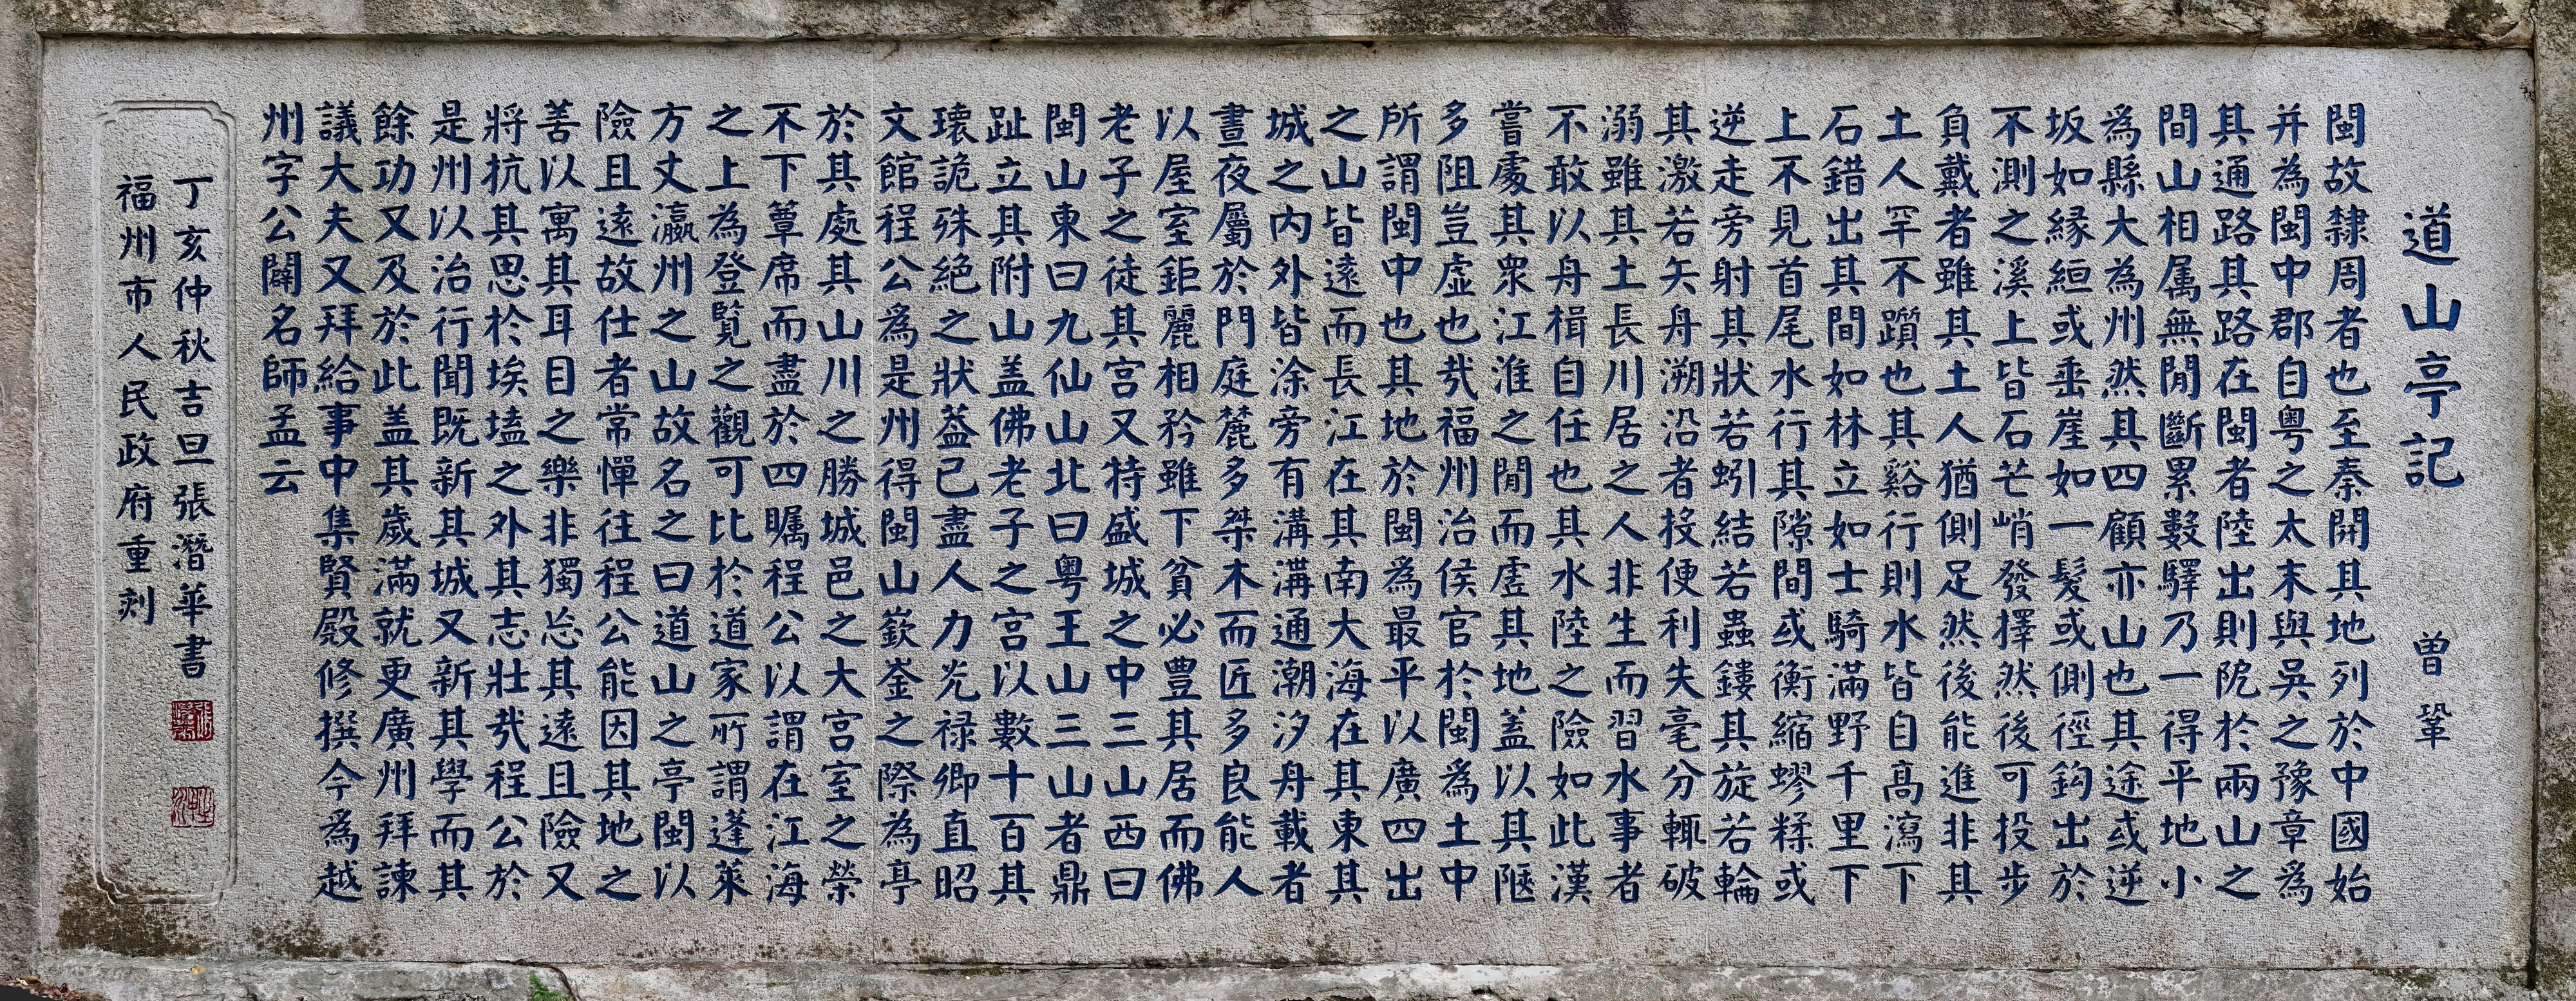 道山亭記 曾鞏
閩故隸周者也至秦開其地列於中國始
并為閩中郡自粵之太末與吳之豫章為
其通路其路在閩者陸出則阸於兩山之
間山相属無間斷累數驛乃一得平地小
為縣大為州然其四顧亦山也其途或逆
坂如緣絙或垂崖如一髮或側徑鈎出於
不測之溪上皆石芒峭發擇然後可投步
負戴者雖其土人猶側足然後能進非其
土人罕不躓也其谿行則水皆自高瀉下
石錯出其間如林立如士騎滿野千里下
上不見首尾水行其隙間或衡縮蟉糅或
逆走旁射其狀若蚓結若蟲鏤其旋若輪
其激若矢舟溯沿者投便利失毫分輒破
溺雖其土長川居之人非生而習水事者
不敢以舟楫自任也其水陸之險如此漢
嘗處其衆江淮之間而虛其地蓋以其陿
多阻豈虛也哉福州治侯官於閩為土中
所謂閩中也其地於閩為最平以廣四出
之山皆遠而長江在其南大海在其東其
城之内外皆涂旁有溝溝通潮汐舟載者
晝夜屬於門庭麓多桀木而匠多良能人
以屋室鉅麗相矜雖下貧必豊其居而佛
老子之徒其宮又特盛城之中三山西曰
閩山東曰九仙山北曰粵王山三山者鼎
趾立其附山盖佛老子之宮以數十百其
瓌詭殊絕之狀蓋已盡人力光禄卿直昭
文館程公為是州得閩山嶔崟之際為亭
於其處其山川之勝城邑之大宮室之榮
不下簟席而盡於四矚程公以謂在江海
之上為登覽之觀可比於道家所謂蓬萊
方丈瀛州之山故名之曰道山之亭閩以
險且遠故仕者常憚往程公能因其地之
善以寓其耳目之樂非獨忘其遠且險又
將抗其思於埃壒之外其志壯哉程公於
是州以治行聞既新其城又新其學而其
餘功又及於此盖其歲滿就更廣州拜諫
議大夫又拜給事中集賢殿修撰今為越
州字公闢名師孟云
丁亥仲秋吉旦張潛華書
福州市人民政府重刻